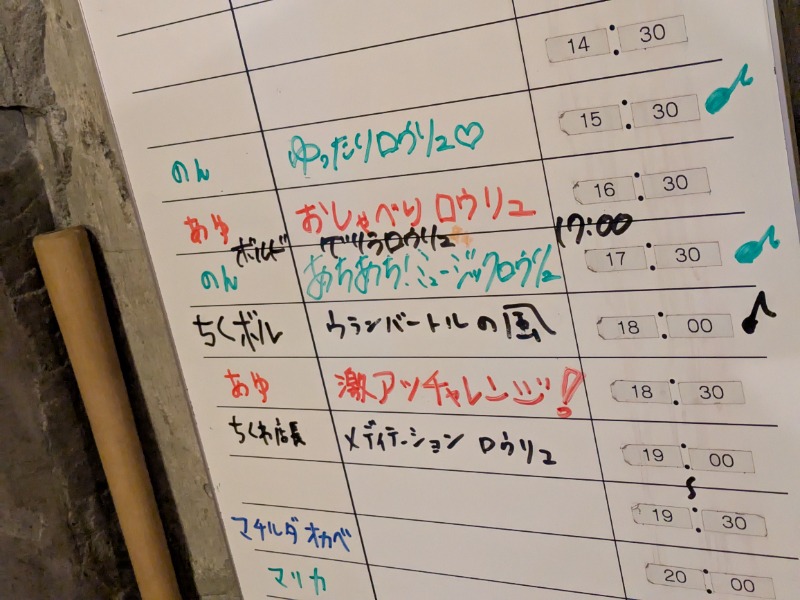 14:30
15:30
のん ゆったりロウリュ♡
16:30
あゆ おしゃべりロウリュ
ボルド ロウリュ 17:00
のん あちあち!ミュージックロウリュ 17:30
ちくボル ウランバートルの風 18:00
あゆ 激アツチャレンジ! 18:30
ちくわ店長 メディテーション ロウリュ 19:00
19:30
マチルダオカベ
マリカ 20:00